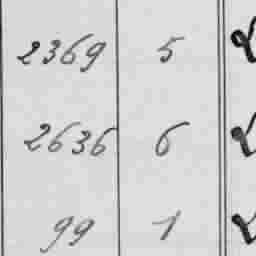 2369 5
2636 6
99 1